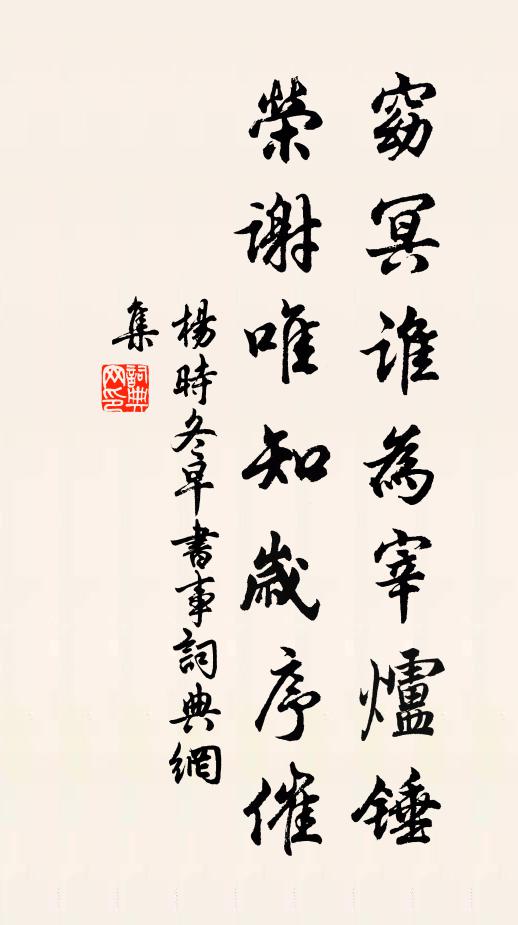 窈冥誰為宰爐錘
榮謝唯知歲序催
楊時冬早書事詞典網
集
詞典网印